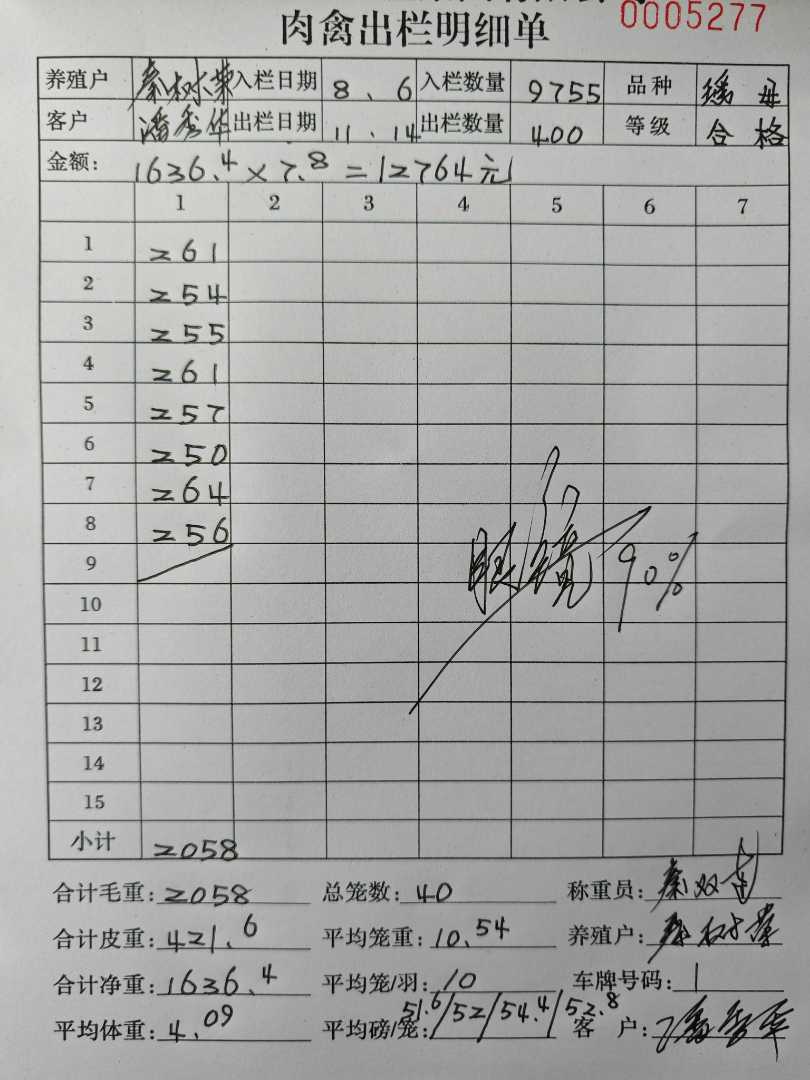 0005277
肉禽出栏明细单
养殖户 秦树荣 入栏日期 8、6 入栏数量 9755 品种
客户 潘秀华 出栏日期 11、14 出栏数量 400 等级 合格
金额: 1636.4×7.8=12764元
1 2 3 4 5 6 7
1 261
2 254
3 255
4 261
5 257
6 250
7 264
8 256
9
10
11
12
13
14
15
眼镜 90%
小计 2058
合计毛重: 2058 总笼数: 40 称重员:
合计皮重: 421.6 平均笼重: 10.54 养殖户: 秦树荣
合计净重: 1636.4 平均笼/羽: 10 车牌号码: 1
平均体重: 4.09 平均磅/笼: 51.6/52/54.4/52.8 客户: 潘秀华